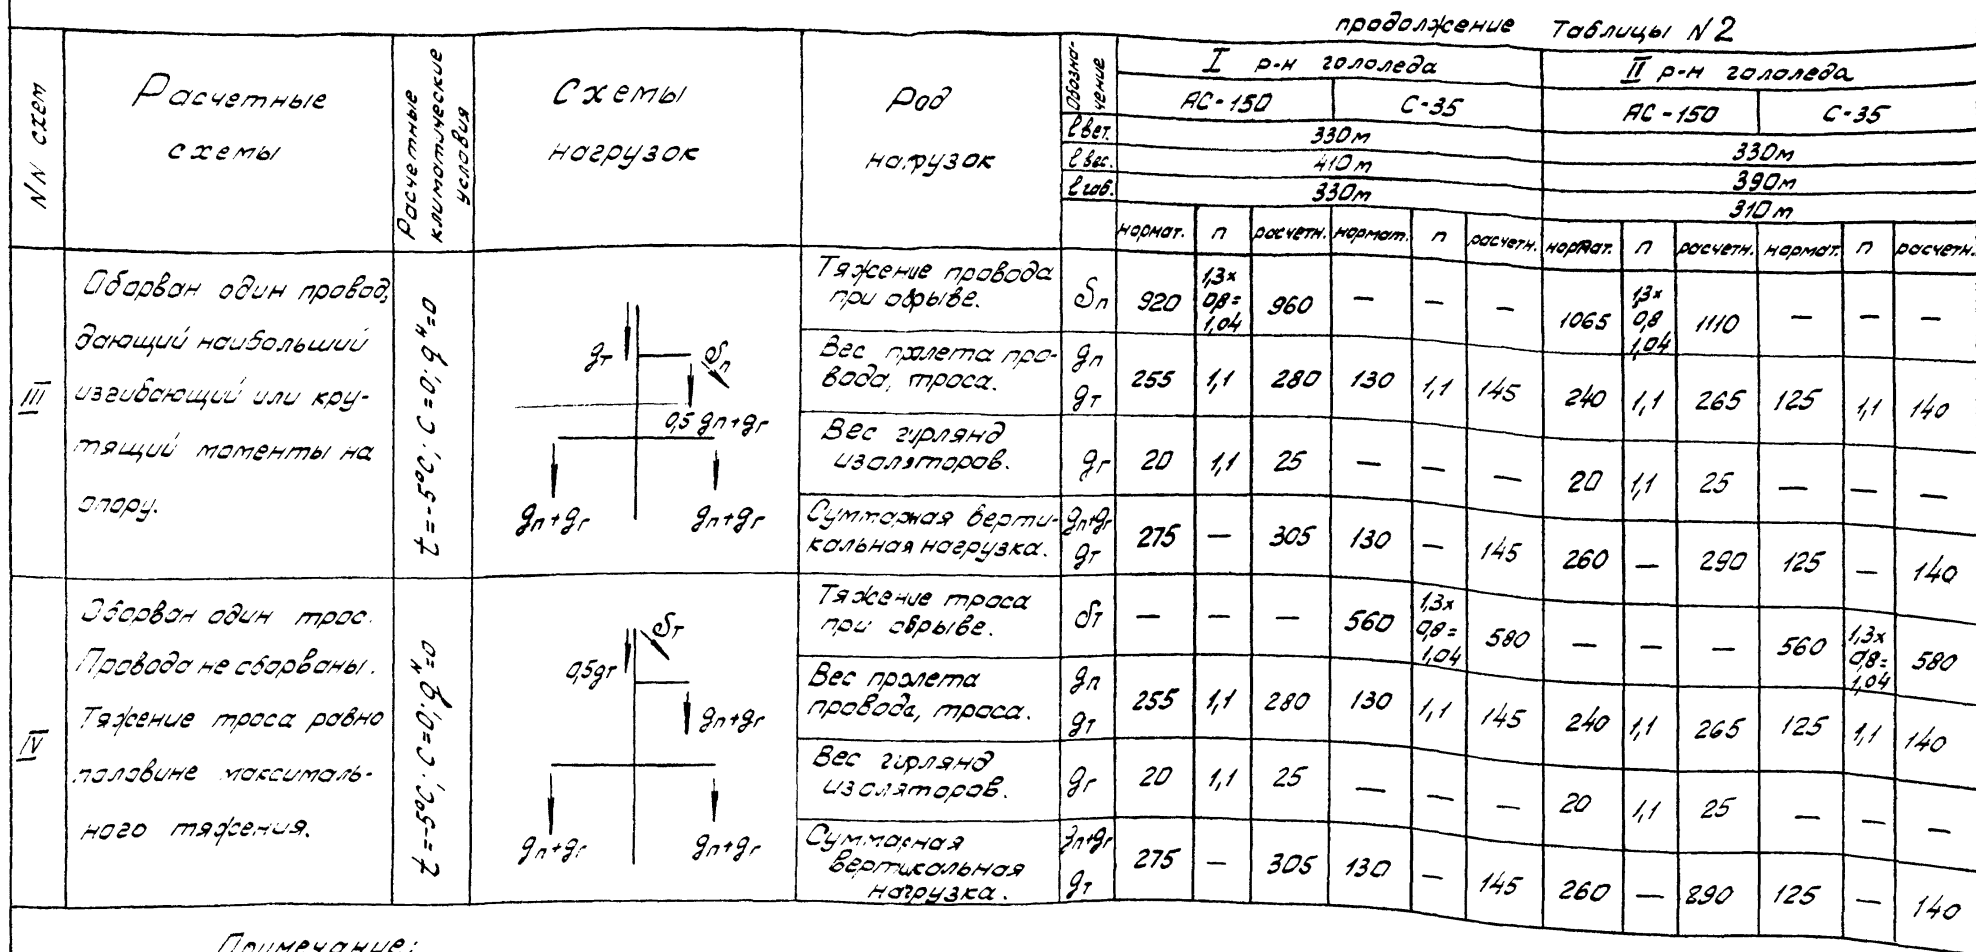 продолжение Таблицы N2
NN схем
Расчетные
схемы
Расчетные
климатические
условия
Схемы
нагрузок
Род
нагрузок
Обозна-
чение
I р-н гололеда
II р-н гололеда
АС-150 С-35 АС-150 С-35
lвет. 330м 330м
lвес. 410м 390м
lгаб. 330м 310м
нормат. п расчетн. нормат. п расчетн. нормат. п расчетн. нормат. п расчетн.
III
Оборван один провод,
дающий наибольший
изгибающий или кру-
тящий моменты на
опору.
t=-5°C; C=0; qн=0
gт
Sп
0,5 gп+gг
gп+gг gп+gг
Тяжение провода
при обрыве.
Sп 920 1,3х 0,8= 1,04 960 — — — 1065 1,3х 0,8 1,04 1110 — — —
Вес пролета про-
вода, троса.
gп
gт
255 1,1 280 130 1,1 145 240 1,1 265 125 1,1 140
Вес гирлянд
изоляторов.
gг 20 1,1 25 — — — 20 1,1 25 — — —
Суммарная верти-
кальная нагрузка.
gп+gг
gт
275 — 305 130 — 145 260 — 290 125 — 140
IV
Оборван один трос.
Провода не оборваны.
Тяжение троса равно
половине максималь-
ного тяжения.
t=-5°C; C=0; qн=0
Sт
0,5gт
gп+gг
gп+gг gп+gг
Тяжение троса
при обрыве.
Sт — — — 560 1,3х 0,8= 1,04 580 — — — 560 1,3х 0,8= 1,04 580
Вес пролета
провода, троса.
gп
gт
255 1,1 280 130 1,1 145 240 1,1 265 125 1,1 140
Вес гирлянд
изоляторов.
gг 20 1,1 25 — — — 20 1,1 25 — — —
Суммарная
вертикальная
нагрузка.
gп+gг
gт
275 — 305 130 — 145 260 — 290 125 — 140
Примечание: